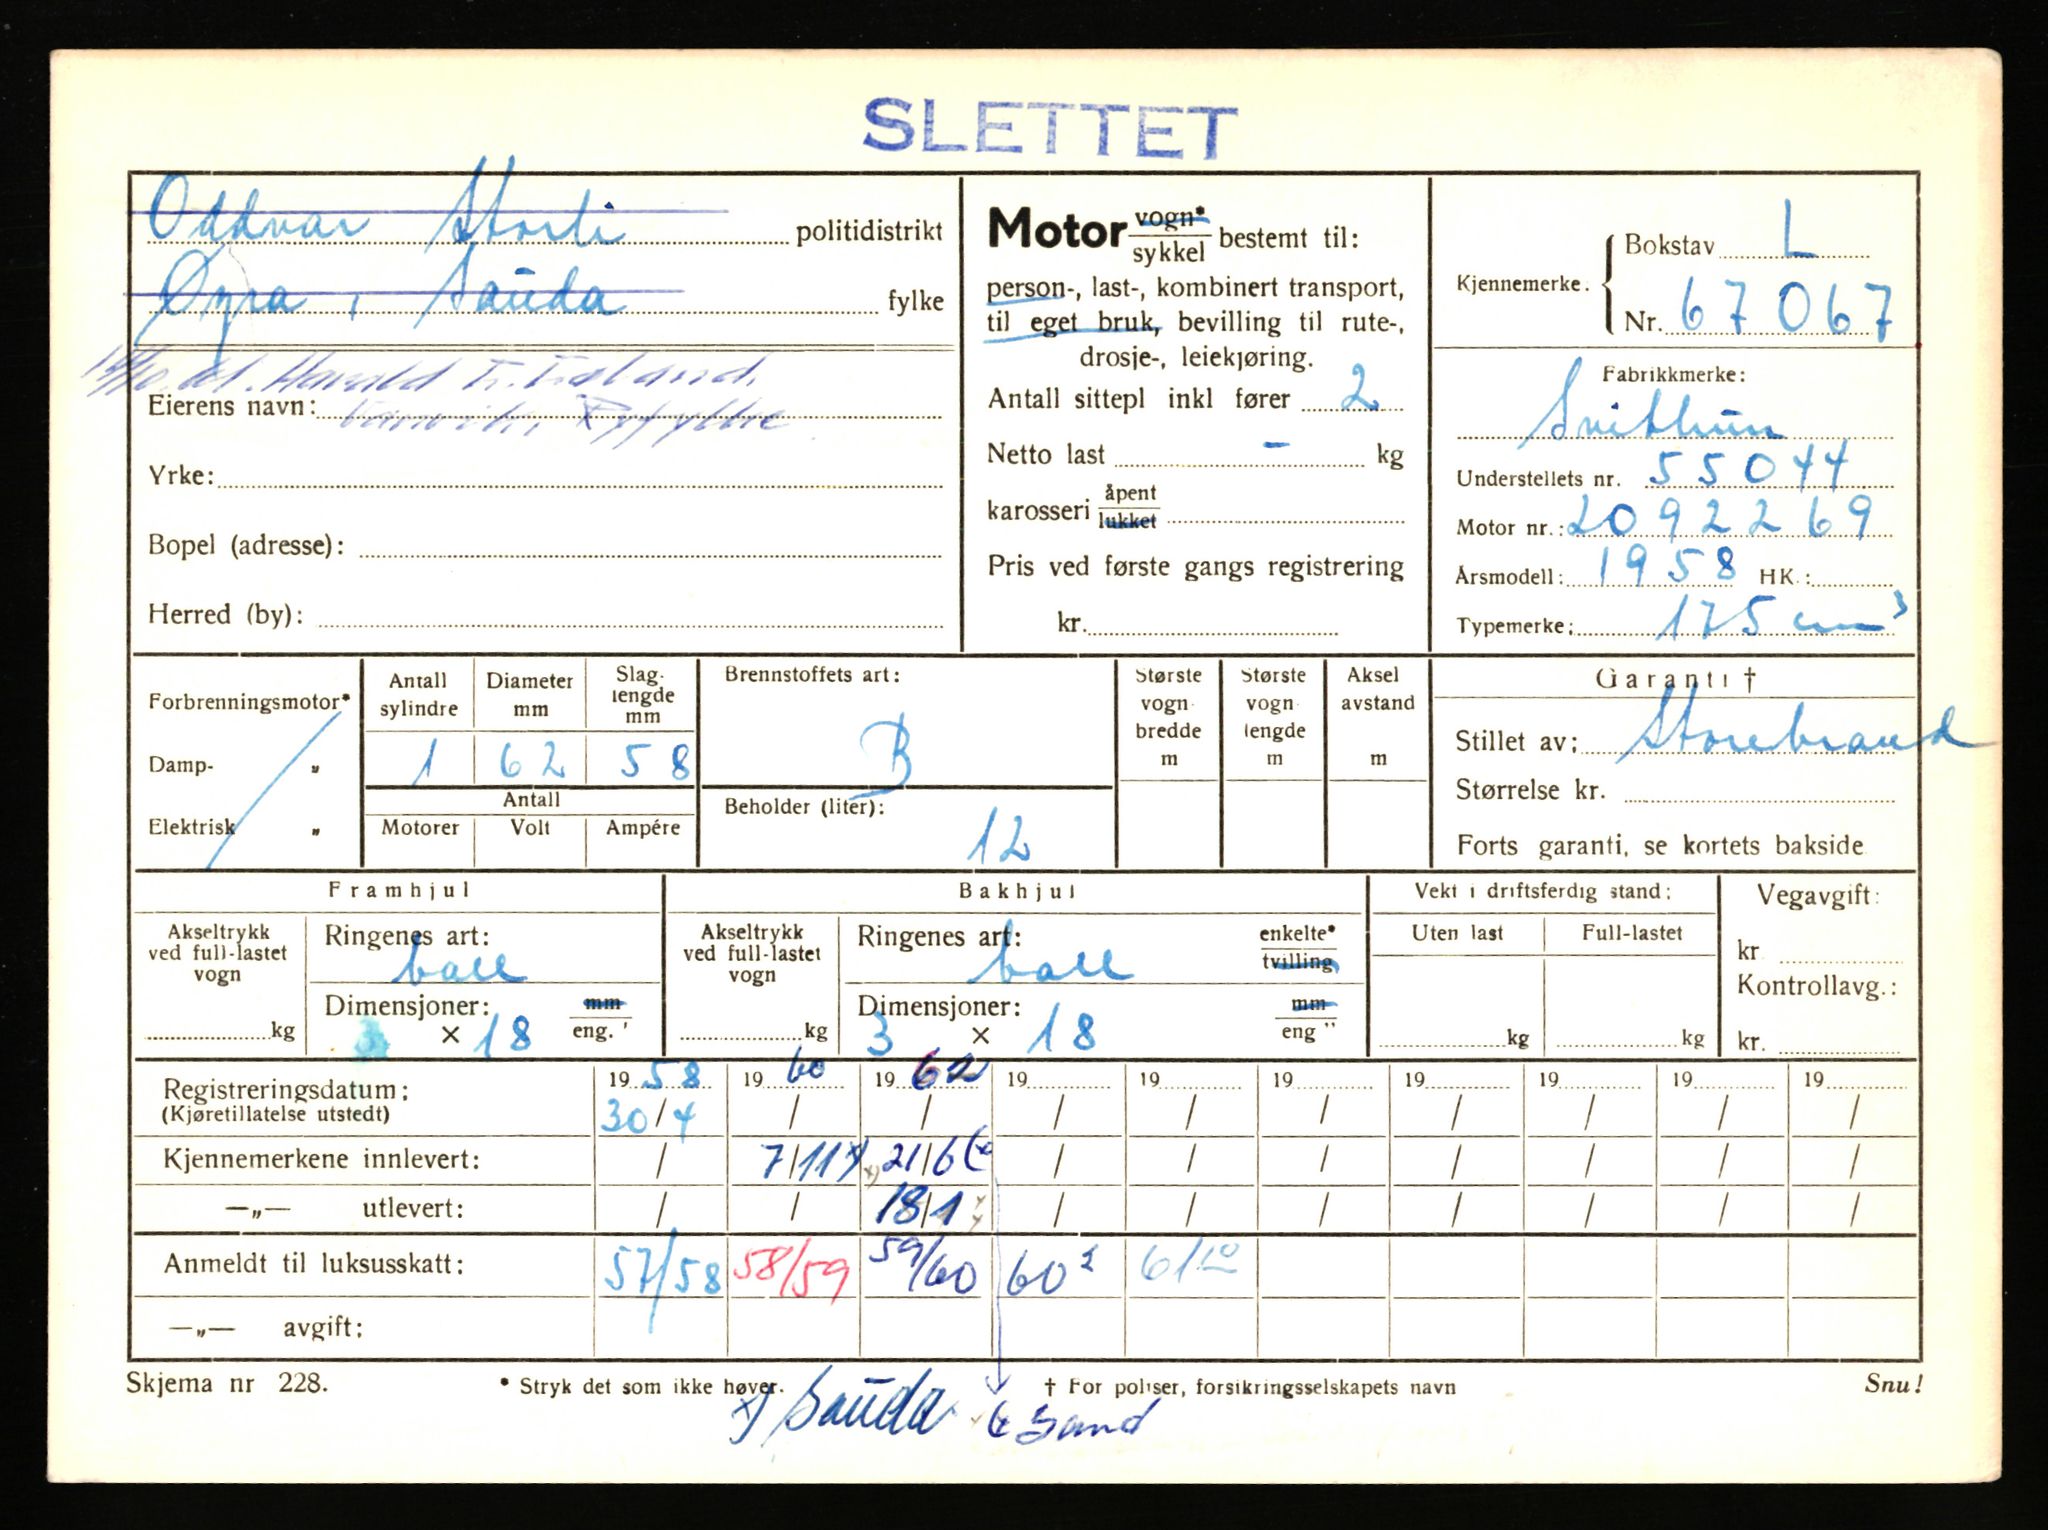 SLETTET
Oddvar Storli politidistrikt
Øyra, Sauda fylke
Harald Tr.
Eierens navn: Ryfylke
Yrke:
Bopel (adresse):
Herred (by):
Motor vogn* / sykkel bestemt til:
person-, last-, kombinert transport,
til eget bruk, bevilling til rute-,
drosje-, leiekjøring.
Antall sittepl inkl fører 2
Netto last – kg
karosseri åpent / lukket
Pris ved første gangs registrering
kr.
Kjennemerke. Bokstav L
Nr. 67067
Fabrikkmerke:
Svithun
Understellets nr. 55044
Motor nr.: 2092269
Årsmodell: 1958 HK.:
Typemerke: 175 cm3
Forbrenningsmotor*
Damp- „
Elektrisk „
Antall sylindre 1
Diameter mm 62
Slag-lengde mm 58
Antall
Motorer Volt Ampére
Brennstoffets art:
B
Beholder (liter):
12
Største vogn bredde m
Største vogn lengde m
Aksel avstand m
Garanti †
Stillet av: Storebrand
Størrelse kr.
Forts garanti, se kortets bakside
Framhjul
Akseltrykk ved full-lastet vogn
kg
Ringenes art:
ball
Dimensjoner: mm / eng. '
× 18
Bakhjul
Akseltrykk ved full-lastet vogn
kg
Ringenes art: enkelte* / tvilling
ball
Dimensjoner: mm / eng "
3 × 18
Vekt i driftsferdig stand:
Uten last Full-lastet
kg kg
Vegavgift:
kr
Kontrollavg.:
kr.
Registreringsdatum: 19 58 19 60 19 62 19 19 19 19 19 19 19
(Kjøretillatelse utstedt) 30/4 / / / / / / / / /
Kjennemerkene innlevert: / 7/11 x) 21/6 (x / / / / / / /
—„— utlevert: / / 18/1 / / / / / / /
Anmeldt til luksusskatt: 57/58 58/59 59/60 60² 61/10
—„— avgift:
Skjema nr 228. * Stryk det som ikke høver. † For poliser, forsikringsselskapets navn Snu!
x) Sauda Sand